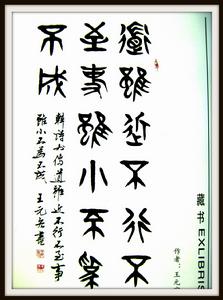 道雖近不行不
至事雖小不為
不成
韓詩外傳道雖近不行不至事
雖小不為不成 王元
藏书 EXLIBRIS
作者:王元